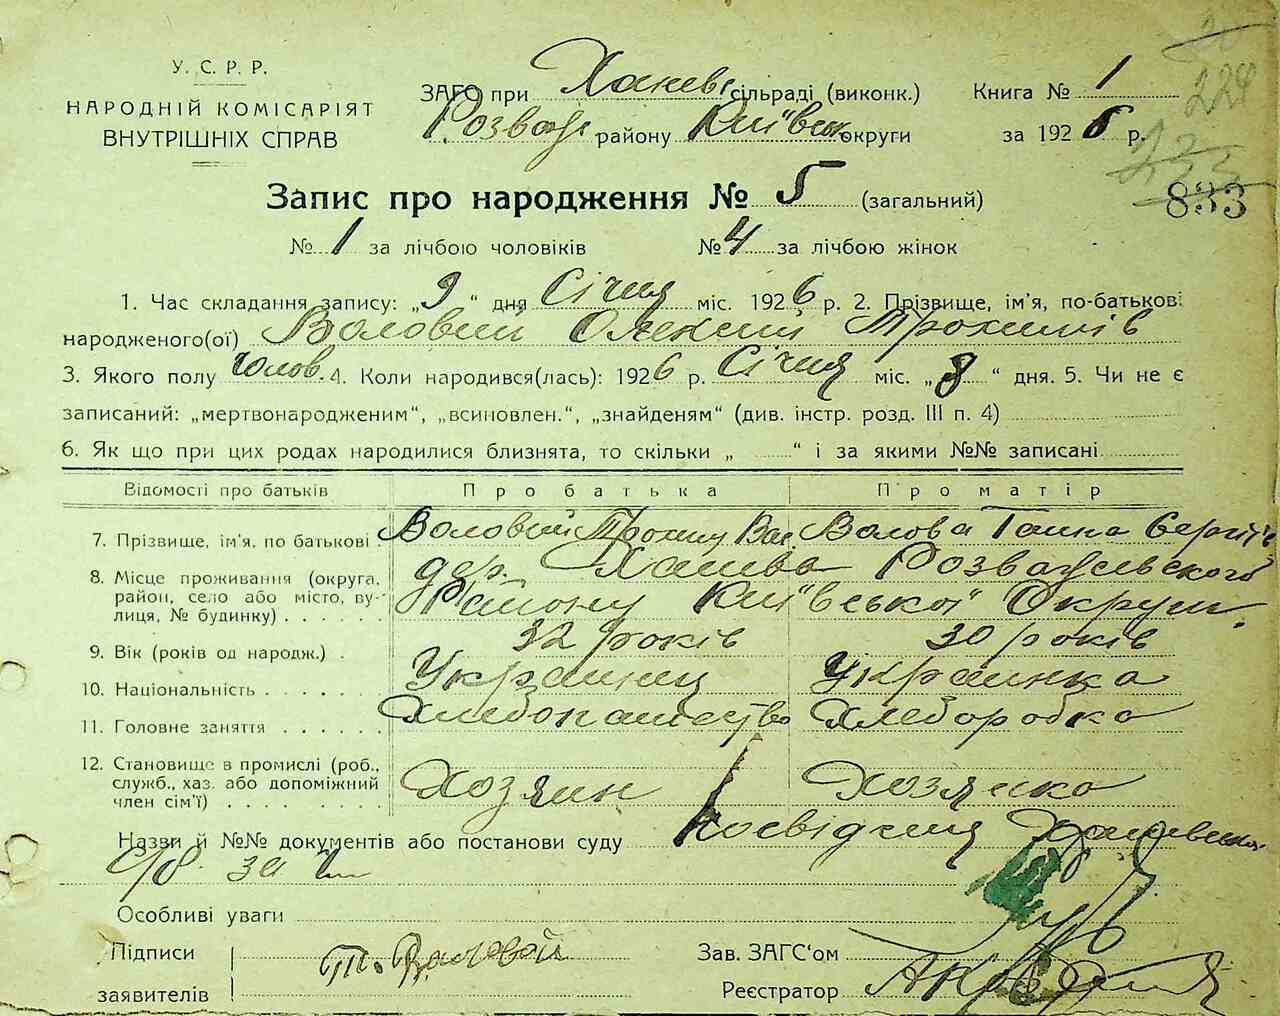 У. С. Р. Р.
НАРОДНІЙ КОМІСАРІЯТ
ВНУТРІШНІХ СПРАВ
ЗАГС при Ханевс сільраді (виконк.)
Розваж. району Київськ округи
Книга № 1
за 1926 р.
229
833
Запис про народження № 5 (загальний)
№ 1 за лічбою чоловіків № 4 за лічбою жінок
1. Час складання запису: „9“ дня Січня міс. 1926 р. 2. Прізвище, ім'я, по-батькові
народженого(ої) Воловий Олексій Трохимів
3. Якого полу Чолов. 4. Коли народився(лась): 1926 р. Січня міс. „8“ дня. 5. Чи не є
записаний: „мертвонародженим“, „всиновлен.“, „знайденям“ (див. інстр. розд. III п. 4)
6. Як що при цих родах народилися близнята, то скільки „ “ і за якими №№ записані
Відомості про батьків Про батька Про матір
7. Прізвище, ім'я, по батькові Воловий Трохим Вас Волова Ганна Сергіїв
8. Місце проживання (округа, район, село або місто, вулиця, № будинку) дер. Ханива Розважевского
Району Київської Округи.
9. Вік (років од народж.) 32 років 30 років
10. Національність Украинец Украинка
11. Головне заняття Хлебопашество Хлеборобка
12. Становище в промислі (роб., служб., хаз. або допоміжний член сім'ї) Хозяин Хозяйка
Назви й №№ документів або постанови суду Посвідчення
с/р за №
Особливі уваги
Підписи
заявителів
Т. Валовой
Зав. ЗАГС'ом
Реєстратор